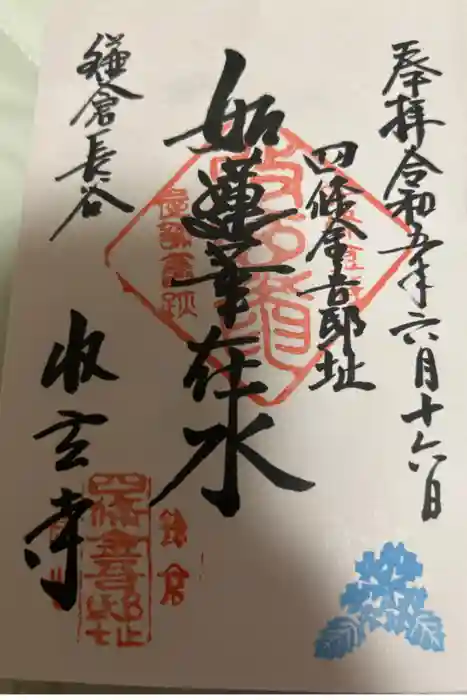 奉拝 令和五年六月十六日
四條金吾邸址
如蓮華在水
鎌倉長谷
收玄寺
四條金吾邸址
鎌倉